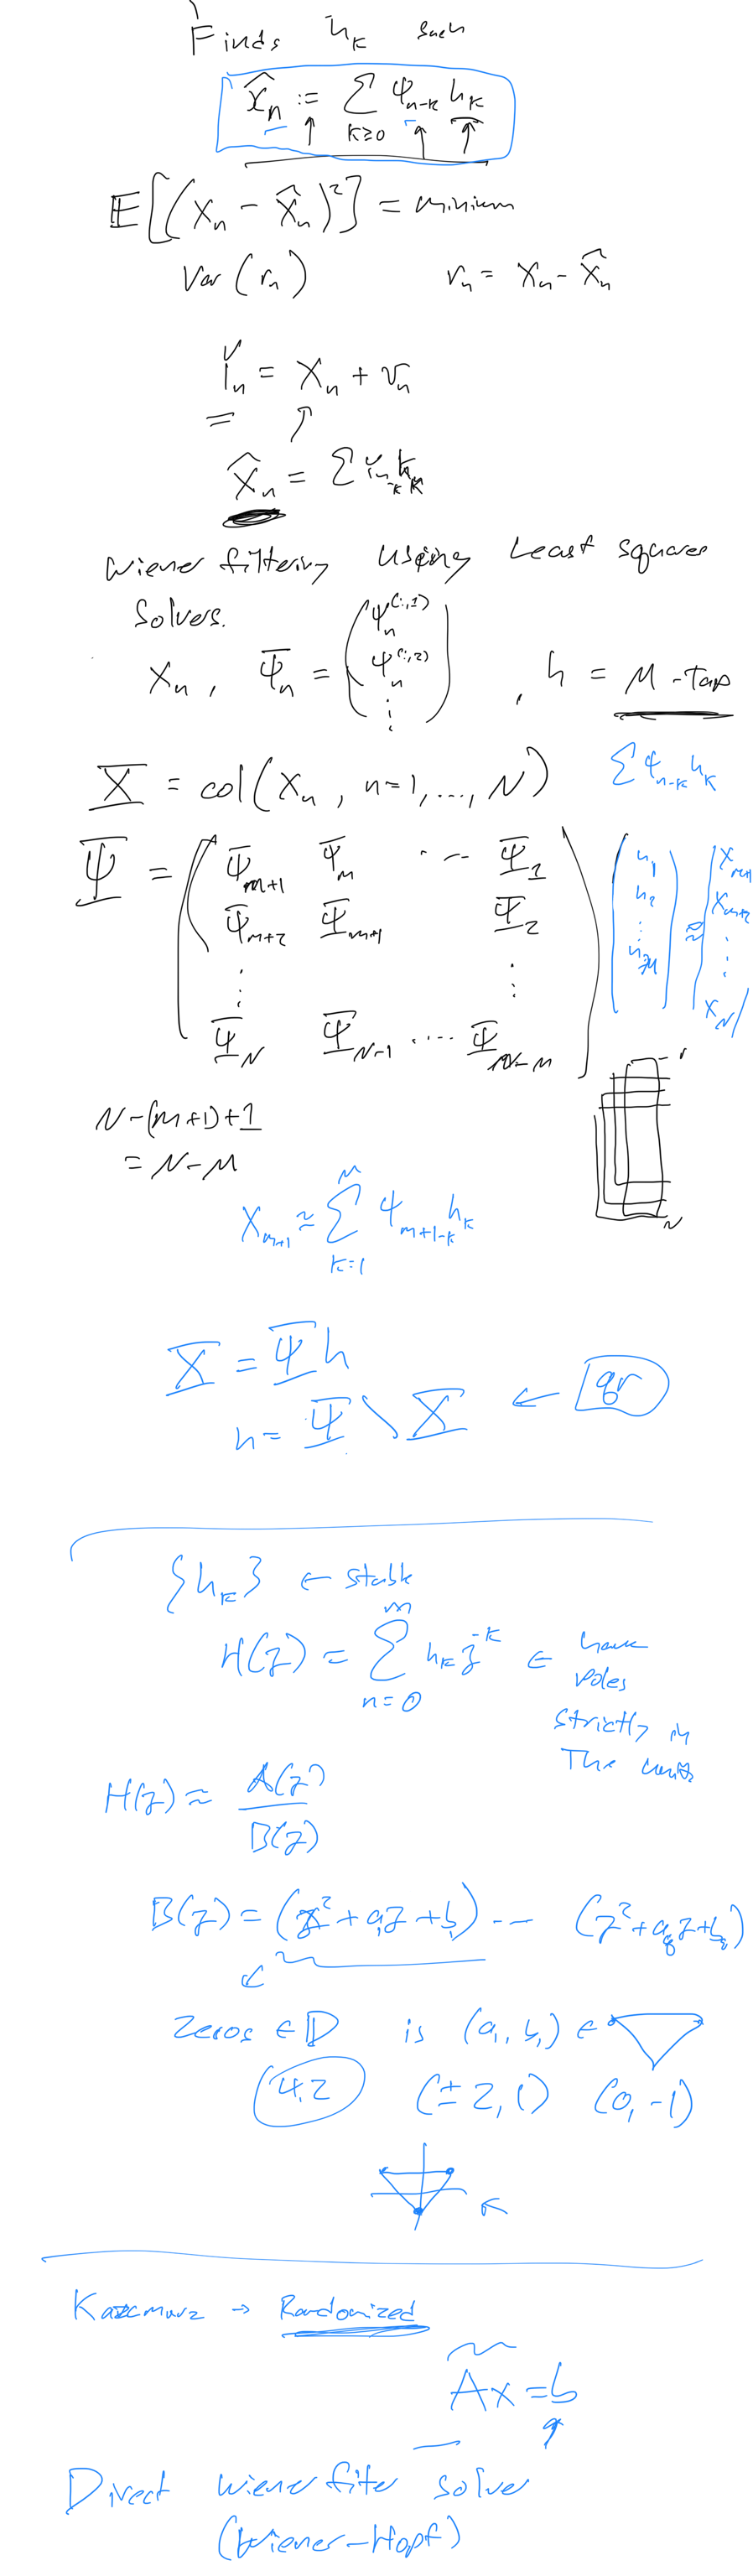 Finds h_k such
x̂_n := Σ_{k≥0} ψ_{n-k} h_k
E[(X_n - X̂_n)²] = minium
Var(r_n)    r_n = X_n - X̂_n
Y_n = X_n + v_n
=
X̂_n = Σ Y_{n-k} h_k
Wiener filtering using Least squares
Solvers.
X_n, Ψ_n = ( ψ_n^{(:,1)} ψ_n^{(:,2)} ⋮ ), h = M-tap
X = col(X_n, n=1,...,N)    Σ ψ_{n-k} h_k
Ψ = ( Ψ_{m+1} Ψ_m ... Ψ_1    ( h_1    ( X_{m+1}
Ψ_{m+2} Ψ_{m+1} Ψ_2    h_2    ≈    X_{m+2}
⋮ ⋮    ⋮    ⋮
Ψ_N Ψ_{N-1} .... Ψ_{N-M} )    h_M )    X_N )
N-(m+1)+1
= N-M
X_{m+1} ≈ Σ_{k=1}^{M} ψ_{m+1-k} h_k
X = Ψ h
h = Ψ \ X ← qr
{h_k} ← stable
H(z) = Σ_{n=0}^{m} h_k z^{-k} ∈ have
poles
strictly in
The unit
H(z) ≈ A(z) / B(z)
B(z) = (z² + a_1 z + b_1) -- (z² + a_q z + b_q)
zeros ∈ D is (a_1, b_1) ∈
4.2 (±2, 1) (0, -1)
Kazcmarz → Randomized
Ax = b
Direct Wiener filter solve
(Wiener-Hopf)